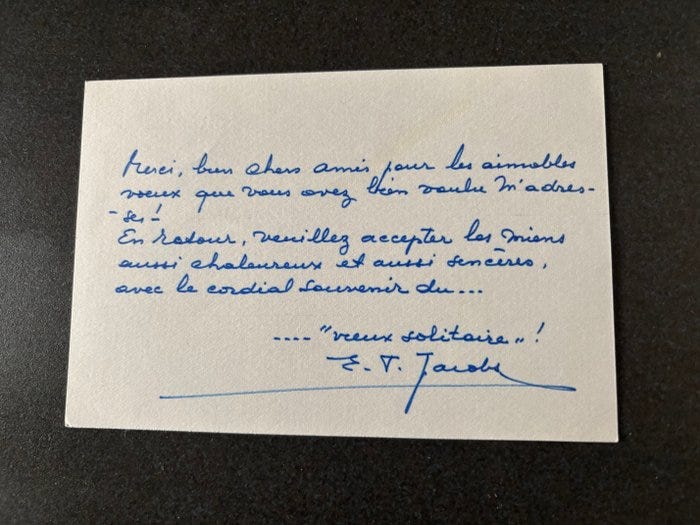 Merci, bien chers amis, pour les aimables
vœux que vous avez bien voulu m'adres-
-ser!
En retour, veuillez accepter les miens
aussi chaleureux et aussi sincères,
avec le cordial souvenir du...
...."vieux solitaire"!
E. P. Jacobs